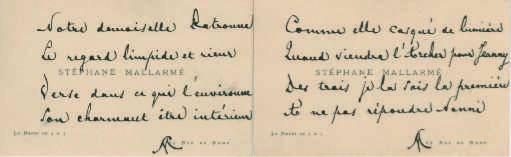 Notre demoiselle Patronne
Le regard limpide et rieur
STÉPHANE MALLARMÉ
Verse dans ce qui l'environne
Son charmant être intérieur
Le Mardi de 4 à 7
Rue de Rome
Comme elle casqué de lumière
Quand viendra l'Archer pour Jeanny
STÉPHANE MALLARMÉ
Des traits je la sais la première
À ne pas répondre Nenni
Le Mardi de 4 à 7
Rue de Rome